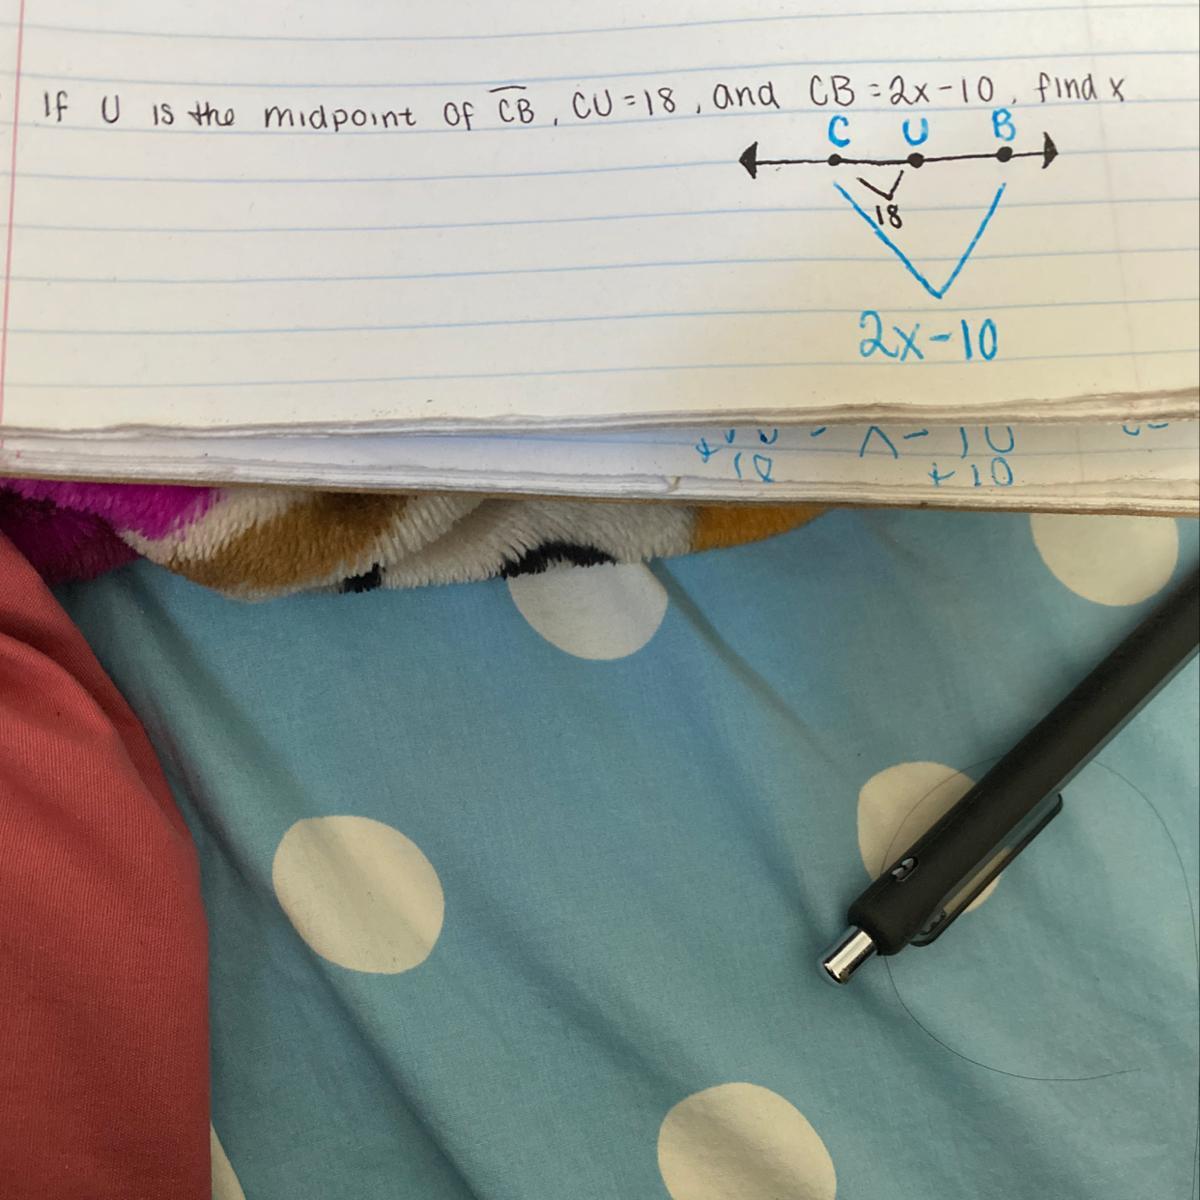 If U is the midpoint of CB, CU=18, and CB=2x-10, find x
C U B
18
2x-10
+10